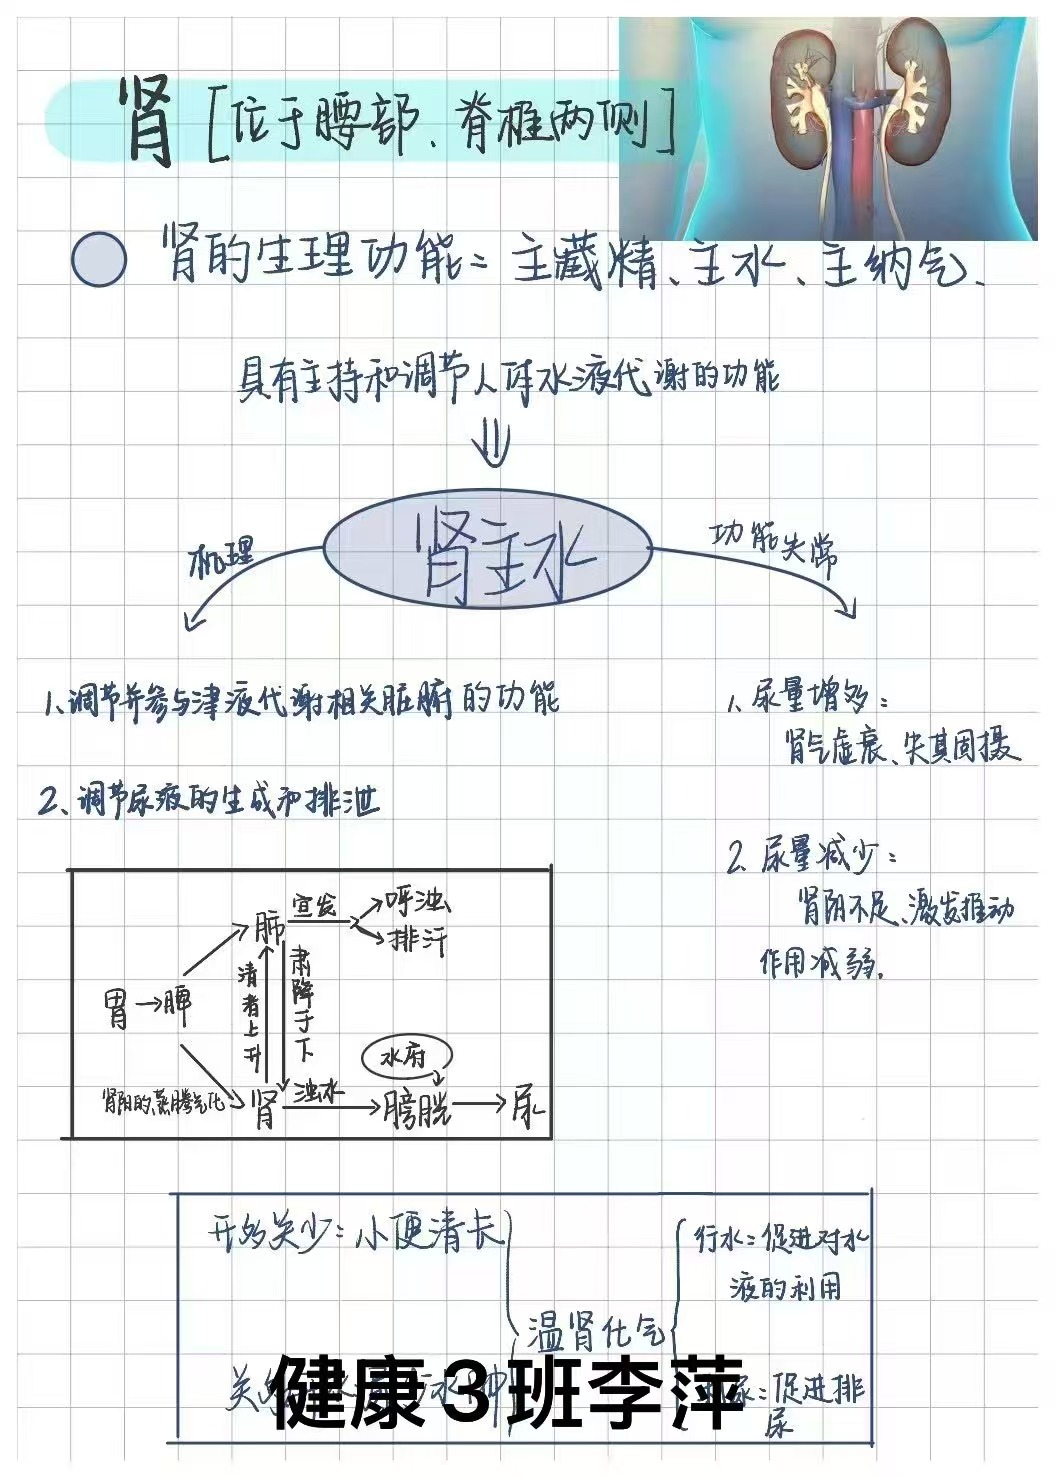 肾[位于腰部、脊椎两侧]
肾的生理功能：主藏精、主水、主纳气.
具有主持和调节人体水液代谢的功能
肾主水
机理
功能失常
1、调节并参与津液代谢相关脏腑的功能
2、调节尿液的生成和排泄
1、尿量增多：
肾气虚衰、失其固摄
2、尿量减少：
肾阳不足、激发推动
作用减弱.
胃→脾
肺 宣发
呼浊
排汗
清者上升
肃降于下
水府
肾阳的蒸腾气化
肾 浊水→膀胱→尿
开多关少：小便清长
温肾化气
行水：促进对水
液的利用
尿：促进排
尿
健康3班李萍